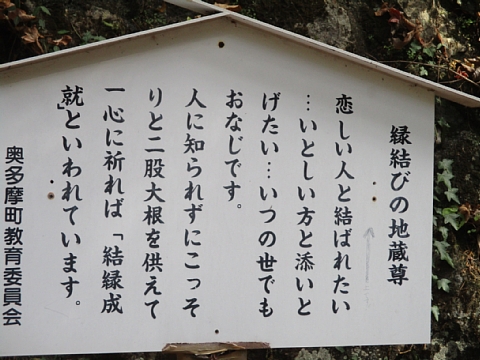 縁結びの地蔵尊
恋しい人と結ばれたい
…いとしい方と添いと
げたい…いつの世でも
おなじです。
人に知られずにこっそ
りと二股大根を供えて
一心に祈れば「結縁成
就」といわれています。
奥多摩町教育委員会